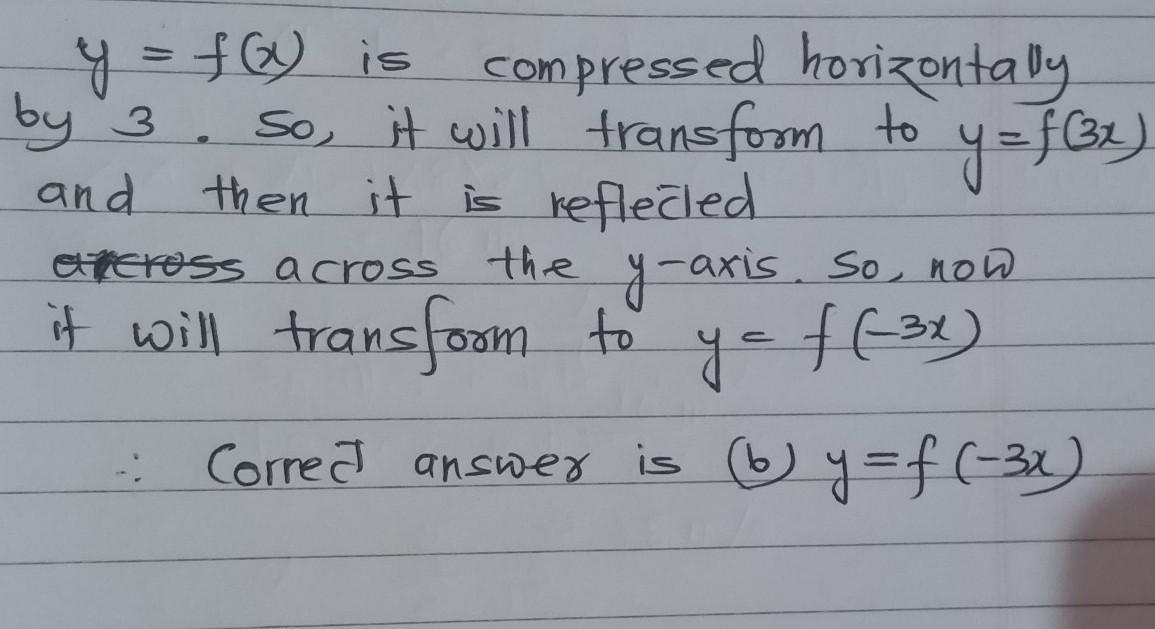 y = f(x) is compressed horizontally
by 3 . So, it will transform to y=f(3x)
and then it is reflected
across the y-axis. So, now
it will transform to y = f(-3x)
∴ Correct answer is (b) y=f(-3x)